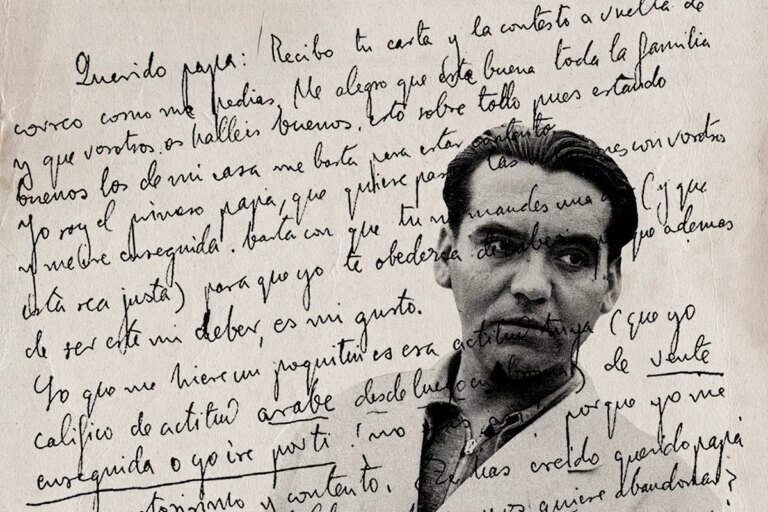 Querido papa: Recibo tu carta y la contesto a vuelta de
correo como me pedias. Me alegro que este buena toda la familia
y que vosotros os halleis buenos, esto sobre todo pues estando
buenos los de mi casa me basta para estar contento
Yo soy el primero papa, que quiere pasar las con vosotros
y me ire enseguida. basta con que tu me mandes una (y que
esta sea justa) para que yo te obedezca que ademas
de ser este mi deber, es mi gusto.
Lo que me hiere un poquitin es esa actitud tuya (que yo
califico de actitud arabe desde luego de vente
enseguida o yo ire por ti! no porque yo me
y contento. Te has creido querido papá
quiere abandonar?